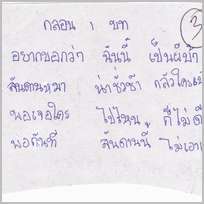 กลอน 1 บท
3
อยากบอกว่า ฉันนี้ เป็นผีบ้า
สันดานหมา น่าชั่วช้า กลัวใคร
พอเจอใคร ไปไหน ก็ไม่ดี
พอถันที สันดานนี้ ไม่เอา